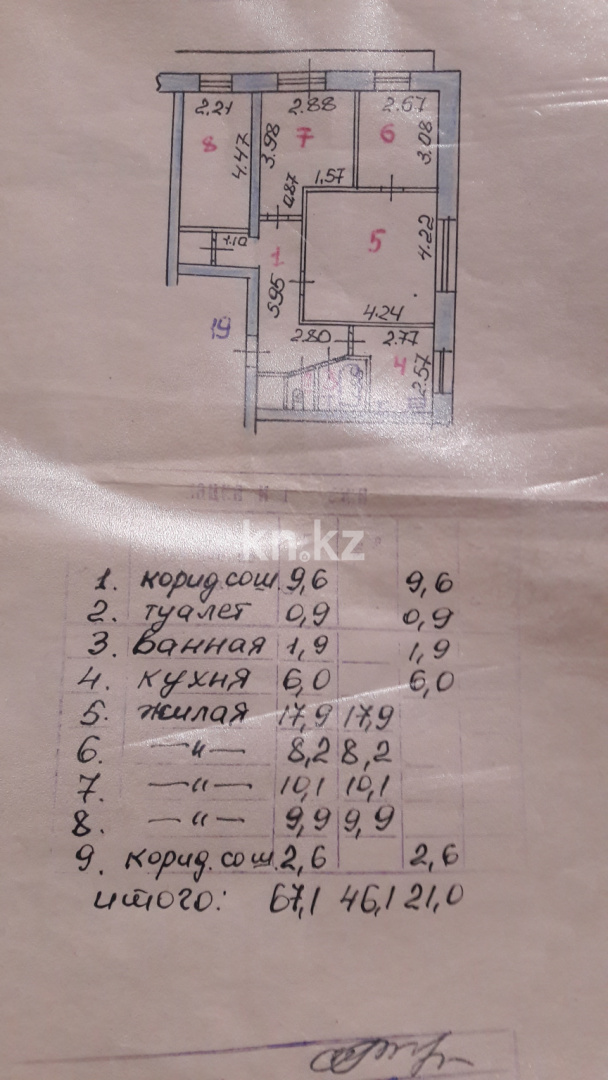 2.21 2.88 2.67
8 4.47 3.98 7 6 3.08
1.57
0.87
1.10 1 5 4.22
5.95
4.24
19 2.80 2.77
4 2.57
kn.kz
1. корид.сош. 9,6 9,6
2. туалет 0,9 0,9
3. Ванная 1,9 1,9
4. кухня 6,0 6,0
5. жилая 17,9 17,9
6. —"— 8,2 8,2
7. —"— 10,1 10,1
8. —"— 9,9 9,9
9. корид.сош. 2,6 2,6
итого: 67,1 46,1 21,0